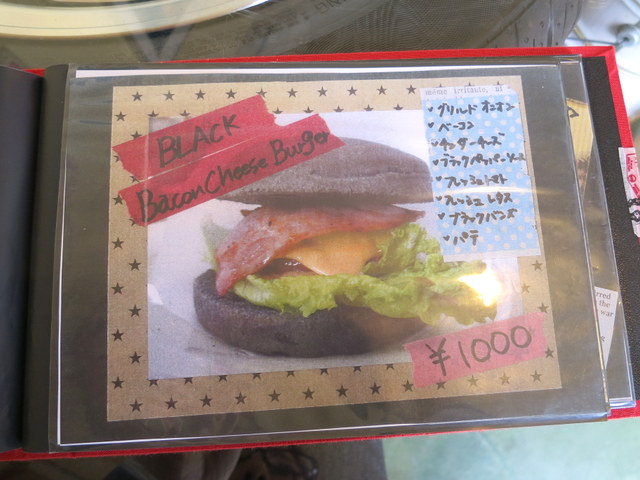 BLACK
Bacon Cheese Burger
グリルド オニオン
ベーコン
チェダーチーズ
ブラックペッパーソース
フレッシュトマト
フレッシュ レタス
ブラックバンズ
パテ
¥1000
the
war